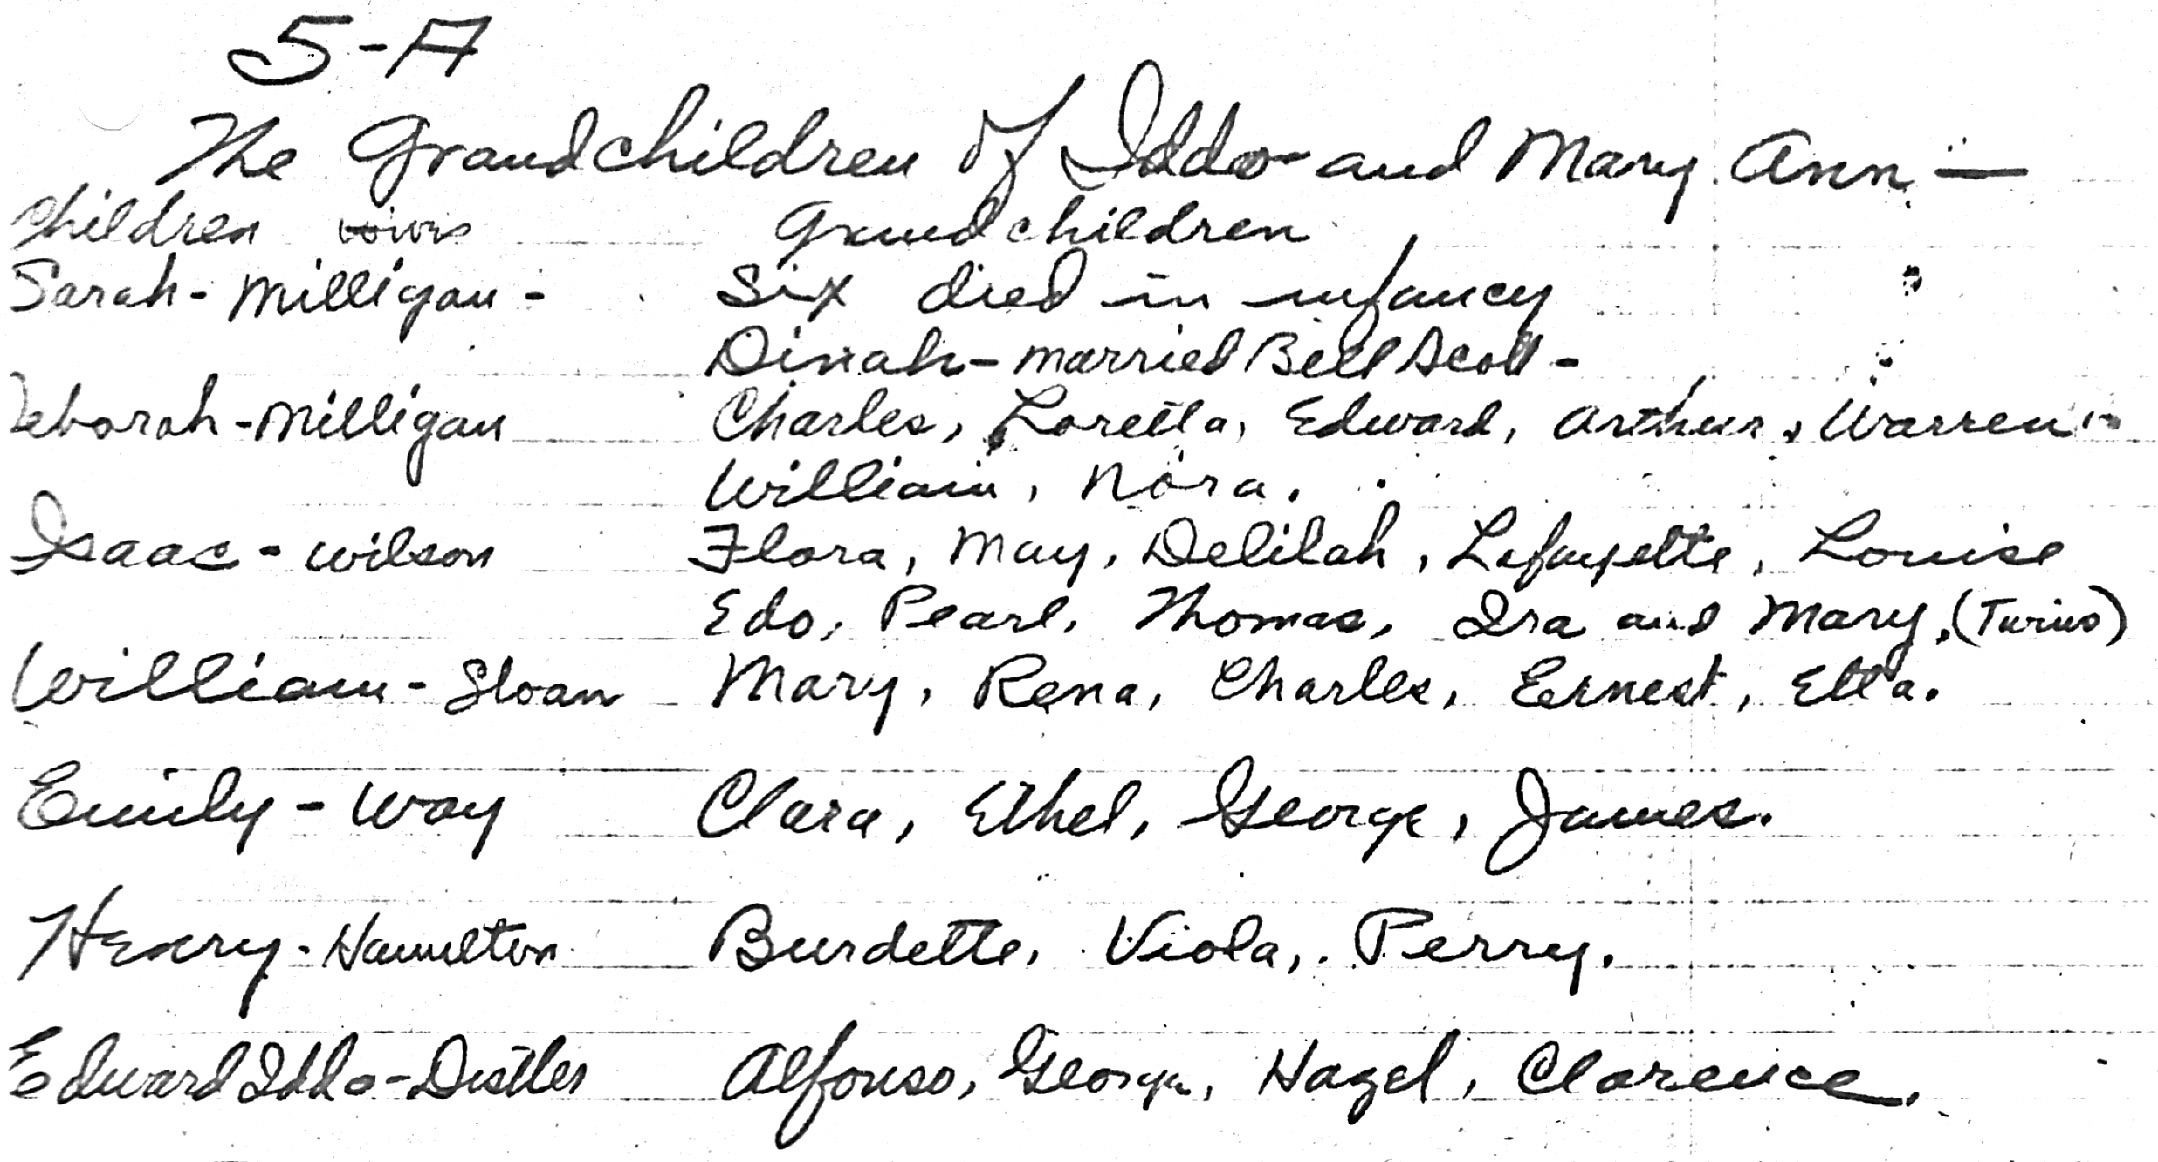 5-A
The Grandchildren of Iddo and Mary Ann —
Children Grandchildren
Sarah - Milligan - Six died in infancy
Dinah - married Bell Scott -
Deborah - Milligan Charles, Loretta, Edward, Arthur, Warren
William, Nora.
Isaac - Wilson Flora, May, Delilah, Lafayette, Louise
Edo, Pearl, Thomas, Ira and Mary, (Twins)
William - Sloan Mary, Rena, Charles, Ernest, Etta.
Emily - Way Clara, Ethel, George, James.
Henry - Hamilton Burdette, Viola, Perry.
Edward Iddo - Distler Alfonso, George, Hazel, Clarence.